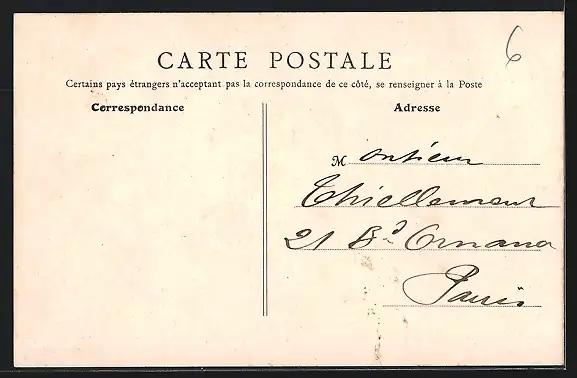 6
CARTE POSTALE
Certains pays étrangers n'acceptant pas la correspondance de ce côté, se renseigner à la Poste
Correspondance
Adresse
Monsieur
Thiellemeur
21 Bd Ornano
Paris